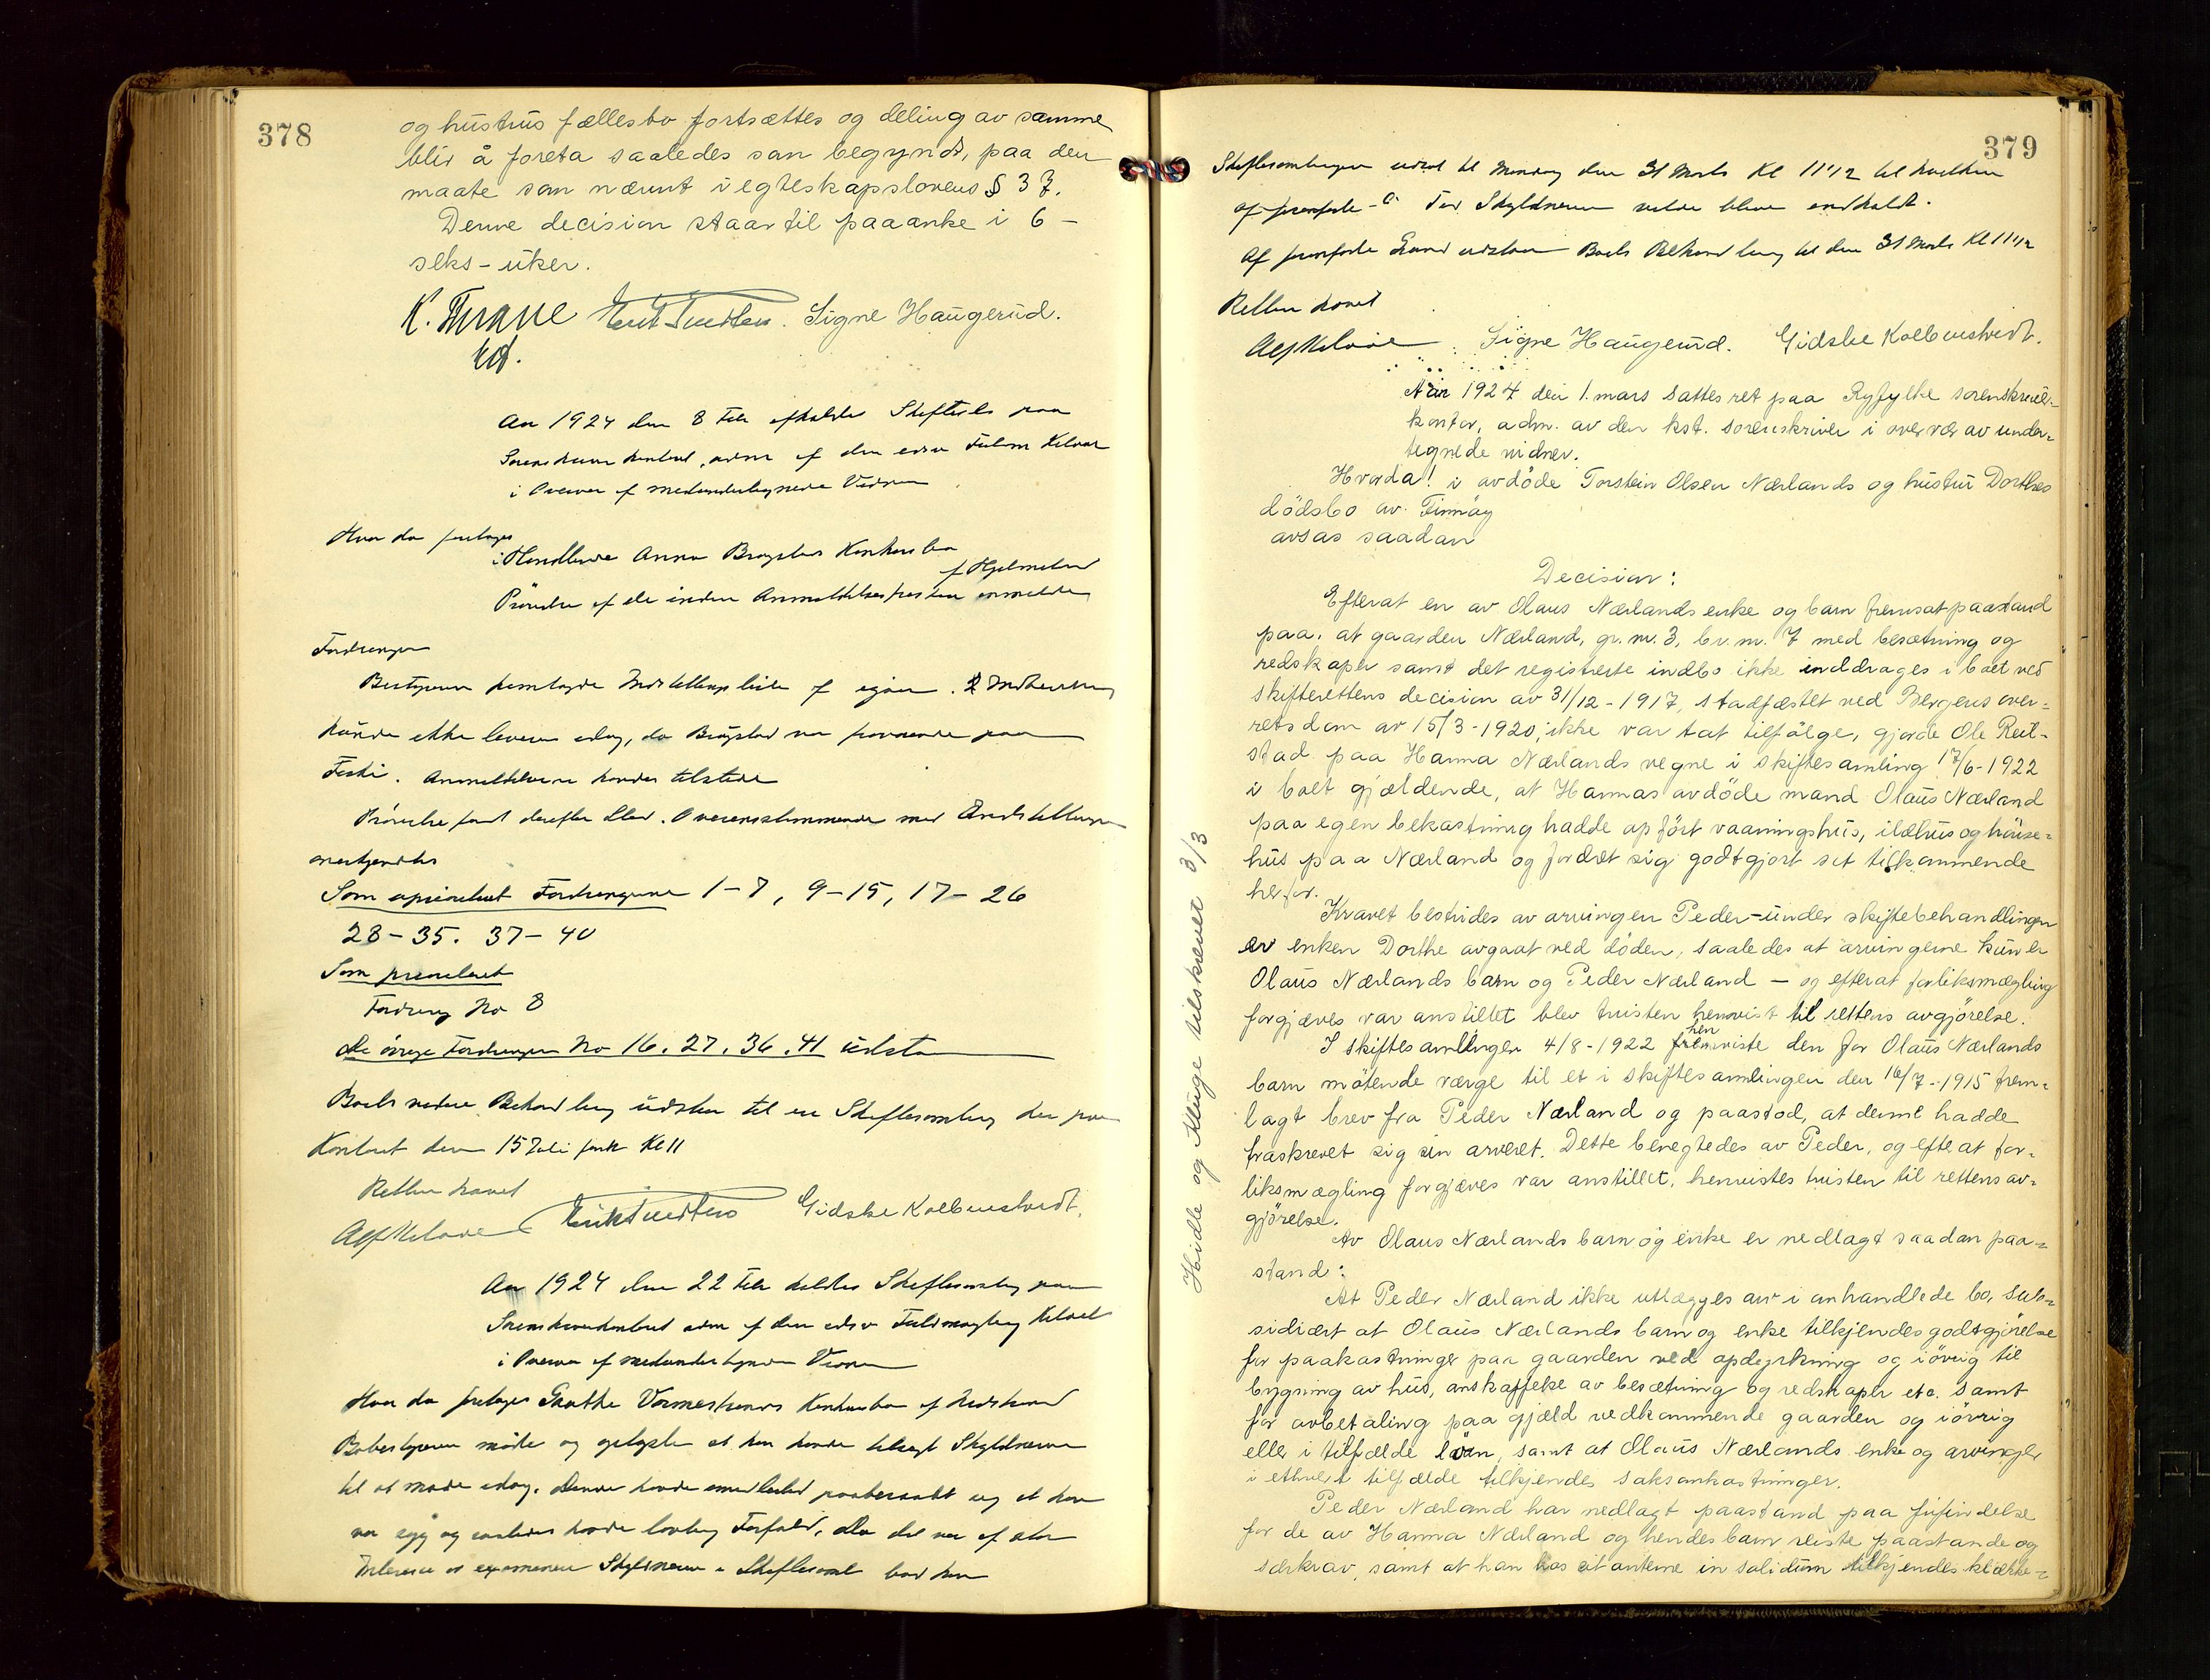 378
og hustrus fællesbo fortsættes og deling av samme
blir å foreta saaledes som begyndt, paa den
maate som nævnt i egteskapslovens § 37.
Denne decision staar til paaanke i 6 -
seks - uker.
K. Thrane Signe Haugerud.
kst.
Aar 1924 den 8 Feb afholdtes Skifteret paa
Sorenskriver kontoret, adm af den edsv Fuldm Kelvar
i Overvær af medundertegnede Vidner
Hvor da foretoges
i Handlende Anna Bragstads Konkursbo
af Hjelmeland
Prövelse af de inden Anmeldelsesfristen anmeldte
Fordringer
Bestyreren fremlagde Indstillingsliste af igaar. 2 Indberetning
kunde ikke leveres idag, da Bragstad var fraværende paa
Fiske. Anmeldelserne havdes tilstede
Prövelse fandt derefter Sted. Overensstemmende med Indstillingen
anerkjendtes
Som uprioritert Fordringerne 1-7, 9-15, 17-26
28-35. 37-40
Som prioritert
Fordring No 8
De övrige Fordringer No 16. 27. 36. 41 udsta
Boets videre Behandling udsattes til en Skiftesamling her paa
Kontoret den 15 Juli fork Kl 11
Retten hævet
Gidske Kolbenstvedt.
Aar 1924 den 22 Feb holdtes Skiftesamling paa
Sorenskriverkontoret adm af den edsv Fuldmægtig
i Overvær af medundertegnede Vidner
Hvor da foretoges Konkursbo af
Bobestyreren mödte og oplyste at han havde tilsagt Skyldneren
til at möde idag. Denne havde imidlertid paaberaabt sig at han
var syg og saaledes havde lovlig Forfald. Da det var af stor
Interesse at examinere Skyldneren i Skifteret bad han
379
Skiftesamlingen udsat til Mandag den 31 Marts Kl 11 1/2 til hvilken
Tid Skyldneren vilde blive indkaldt.
Af fremförte Grund udstaar Boets Behandling til den 31 Marts Kl 11 1/2
Retten hævet
Signe Haugerud. Gidske Kolbenstvedt.
Aar 1924 den 1. mars sattes ret paa Ryfylke sorenskriver=
kontor, adm. av den kst. sorenskriver i overvær av under=
tegnede vidner.
Hvorda! i avdöde Torstein Olsen Nærlands og hustru Dorthes
dödsbo av Finnöy
avsas saadan
Decision:
Efterat en av Olaus Nærlands enke og barn fremsat paastand
paa, at gaarden Nærland, gr. nr. 3, br. nr. 7 med besætning og
redskaper samt det registrerte indbo ikke inddrages i boet ved
skifterettens decision av 31/12 - 1917, stadfæstet ved Bergens over=
retsdom av 15/3 - 1920, ikke var tat tilfölge, gjorde Ole Reil-
stad paa Hanna Nærlands vegne i skiftesamling 17/6 - 1922
i boet gjældende, at Hannas avdöde mand Olaus Nærland
paa egen bekostning hadde opfört vaaningshus, ildhus og hönse=
hus paa Nærland og fordret sig godtgjort sit tilkommende
herfor.
Kravet bestrides av arvingen Peder - under skiftebehandlingen
er enken Dorthe avgaat ved döden, saaledes at arvingerne kun er
Olaus Nærlands barn og Peder Nærland - og efterat forliksmægling
forgjæves var anstillet blev tvisten henvist til rettens avgjörelse.
I skiftesamlingen 4/8 - 1922 henviste den for Olaus Nærlands
barn mötende værge til et i skiftesamlingen den 16/7 - 1915 frem=
lagt brev fra Peder Nærland og paastod, at denne hadde
fraskrevet sig sin arveret. Dette benegtedes av Peder, og efterat for=
liksmægling forgjæves var anstillet, henvistes tvisten til rettens av=
gjörelse.
Av Olaus Nærlands barn og enke er nedlagt saadan paa=
stand:
At Peder Nærland ikke utlægges arv i anhandlede bo, sub=
sidiært at Olaus Nærlands barn og enke tilkjendes godtgjörelse
for paakostninger paa gaarden ved opdyrkning og iövrig til
bygning av hus, anskaffelse av besætning og redskaper etc. samt
for avbetaling paa gjæld vedkommende gaarden og iövrig
eller i tilfælde lön, samt at Olaus Nærlands enke og arvinger
i ethvert tilfælde tilkjendes saksomkostninger.
Peder Nærland har nedlagt paastand paa frifindelse
for de av Hanna Nærland og hendes barn reiste paastande og
særkrav, samt at han hos citanterne in solidum tilkjendes klække=
Hidle og Meuge tilskrevet 3/3